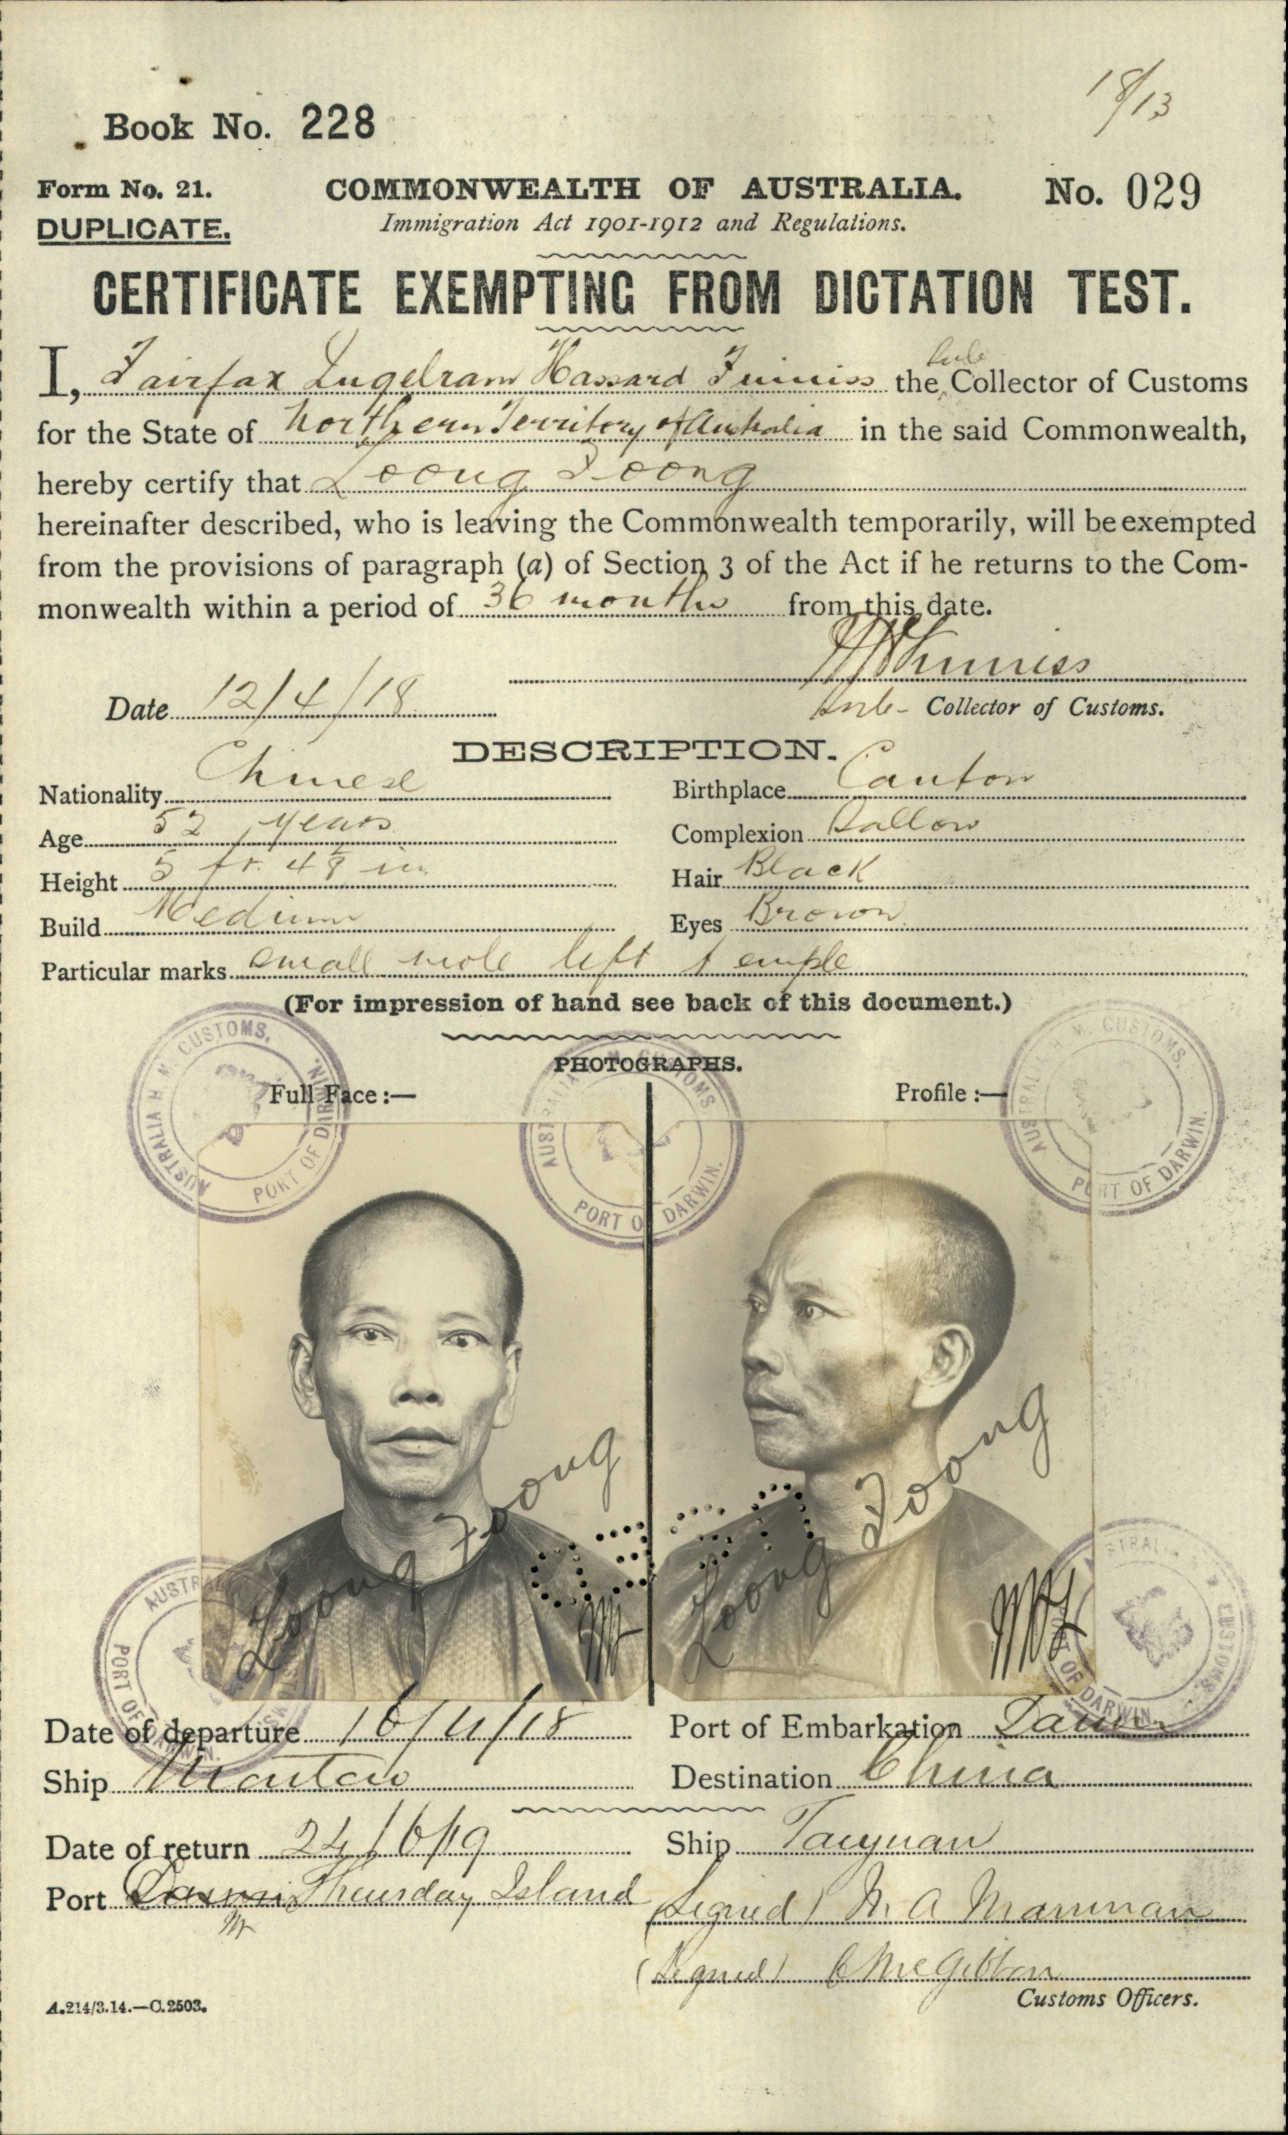 18/13
Book No. 228
Form No. 21. COMMONWEALTH OF AUSTRALIA. No. 029
DUPLICATE. Immigration Act 1901-1912 and Regulations.
CERTIFICATE EXEMPTING FROM DICTATION TEST.
I, Fairfax Ingelram Hassard Finniss the Sub Collector of Customs
for the State of Northern Territory of Australia in the said Commonwealth,
hereby certify that Loong Foong
hereinafter described, who is leaving the Commonwealth temporarily, will be exempted
from the provisions of paragraph (a) of Section 3 of the Act if he returns to the Com-
monwealth within a period of 36 months from this date.
Finniss
Date 12/4/18 Sub- Collector of Customs.
DESCRIPTION.
Nationality Chinese Birthplace Canton
Age 52 years Complexion Sallow
Height 5 ft. 4⅛ in. Hair Black
Build Medium Eyes Brown
Particular marks small mole left temple
(For impression of hand see back of this document.)
PHOTOGRAPHS.
Full Face :— Profile :—
AUSTRALIA H. M. CUSTOMS. PORT OF DARWIN.
AUSTRALIA H. M. CUSTOMS PORT OF DARWIN.
AUSTRALIA H. M. CUSTOMS. PORT OF DARWIN.
Loong Foong
Loong Foong
AUSTRALIA CUSTOMS PORT OF DARWIN.
AUSTRALIA H. M. CUSTOMS. PORT OF DARWIN.
Date of departure 16/4/18 Port of Embarkation Darwin
Ship Mataram Destination China
Date of return 24/6/19 Ship Taiyuan
Port Darwin Thursday Island (Signed)
(Signed) C McGibbon
A.214/3.14.—C.2503. Customs Officers.